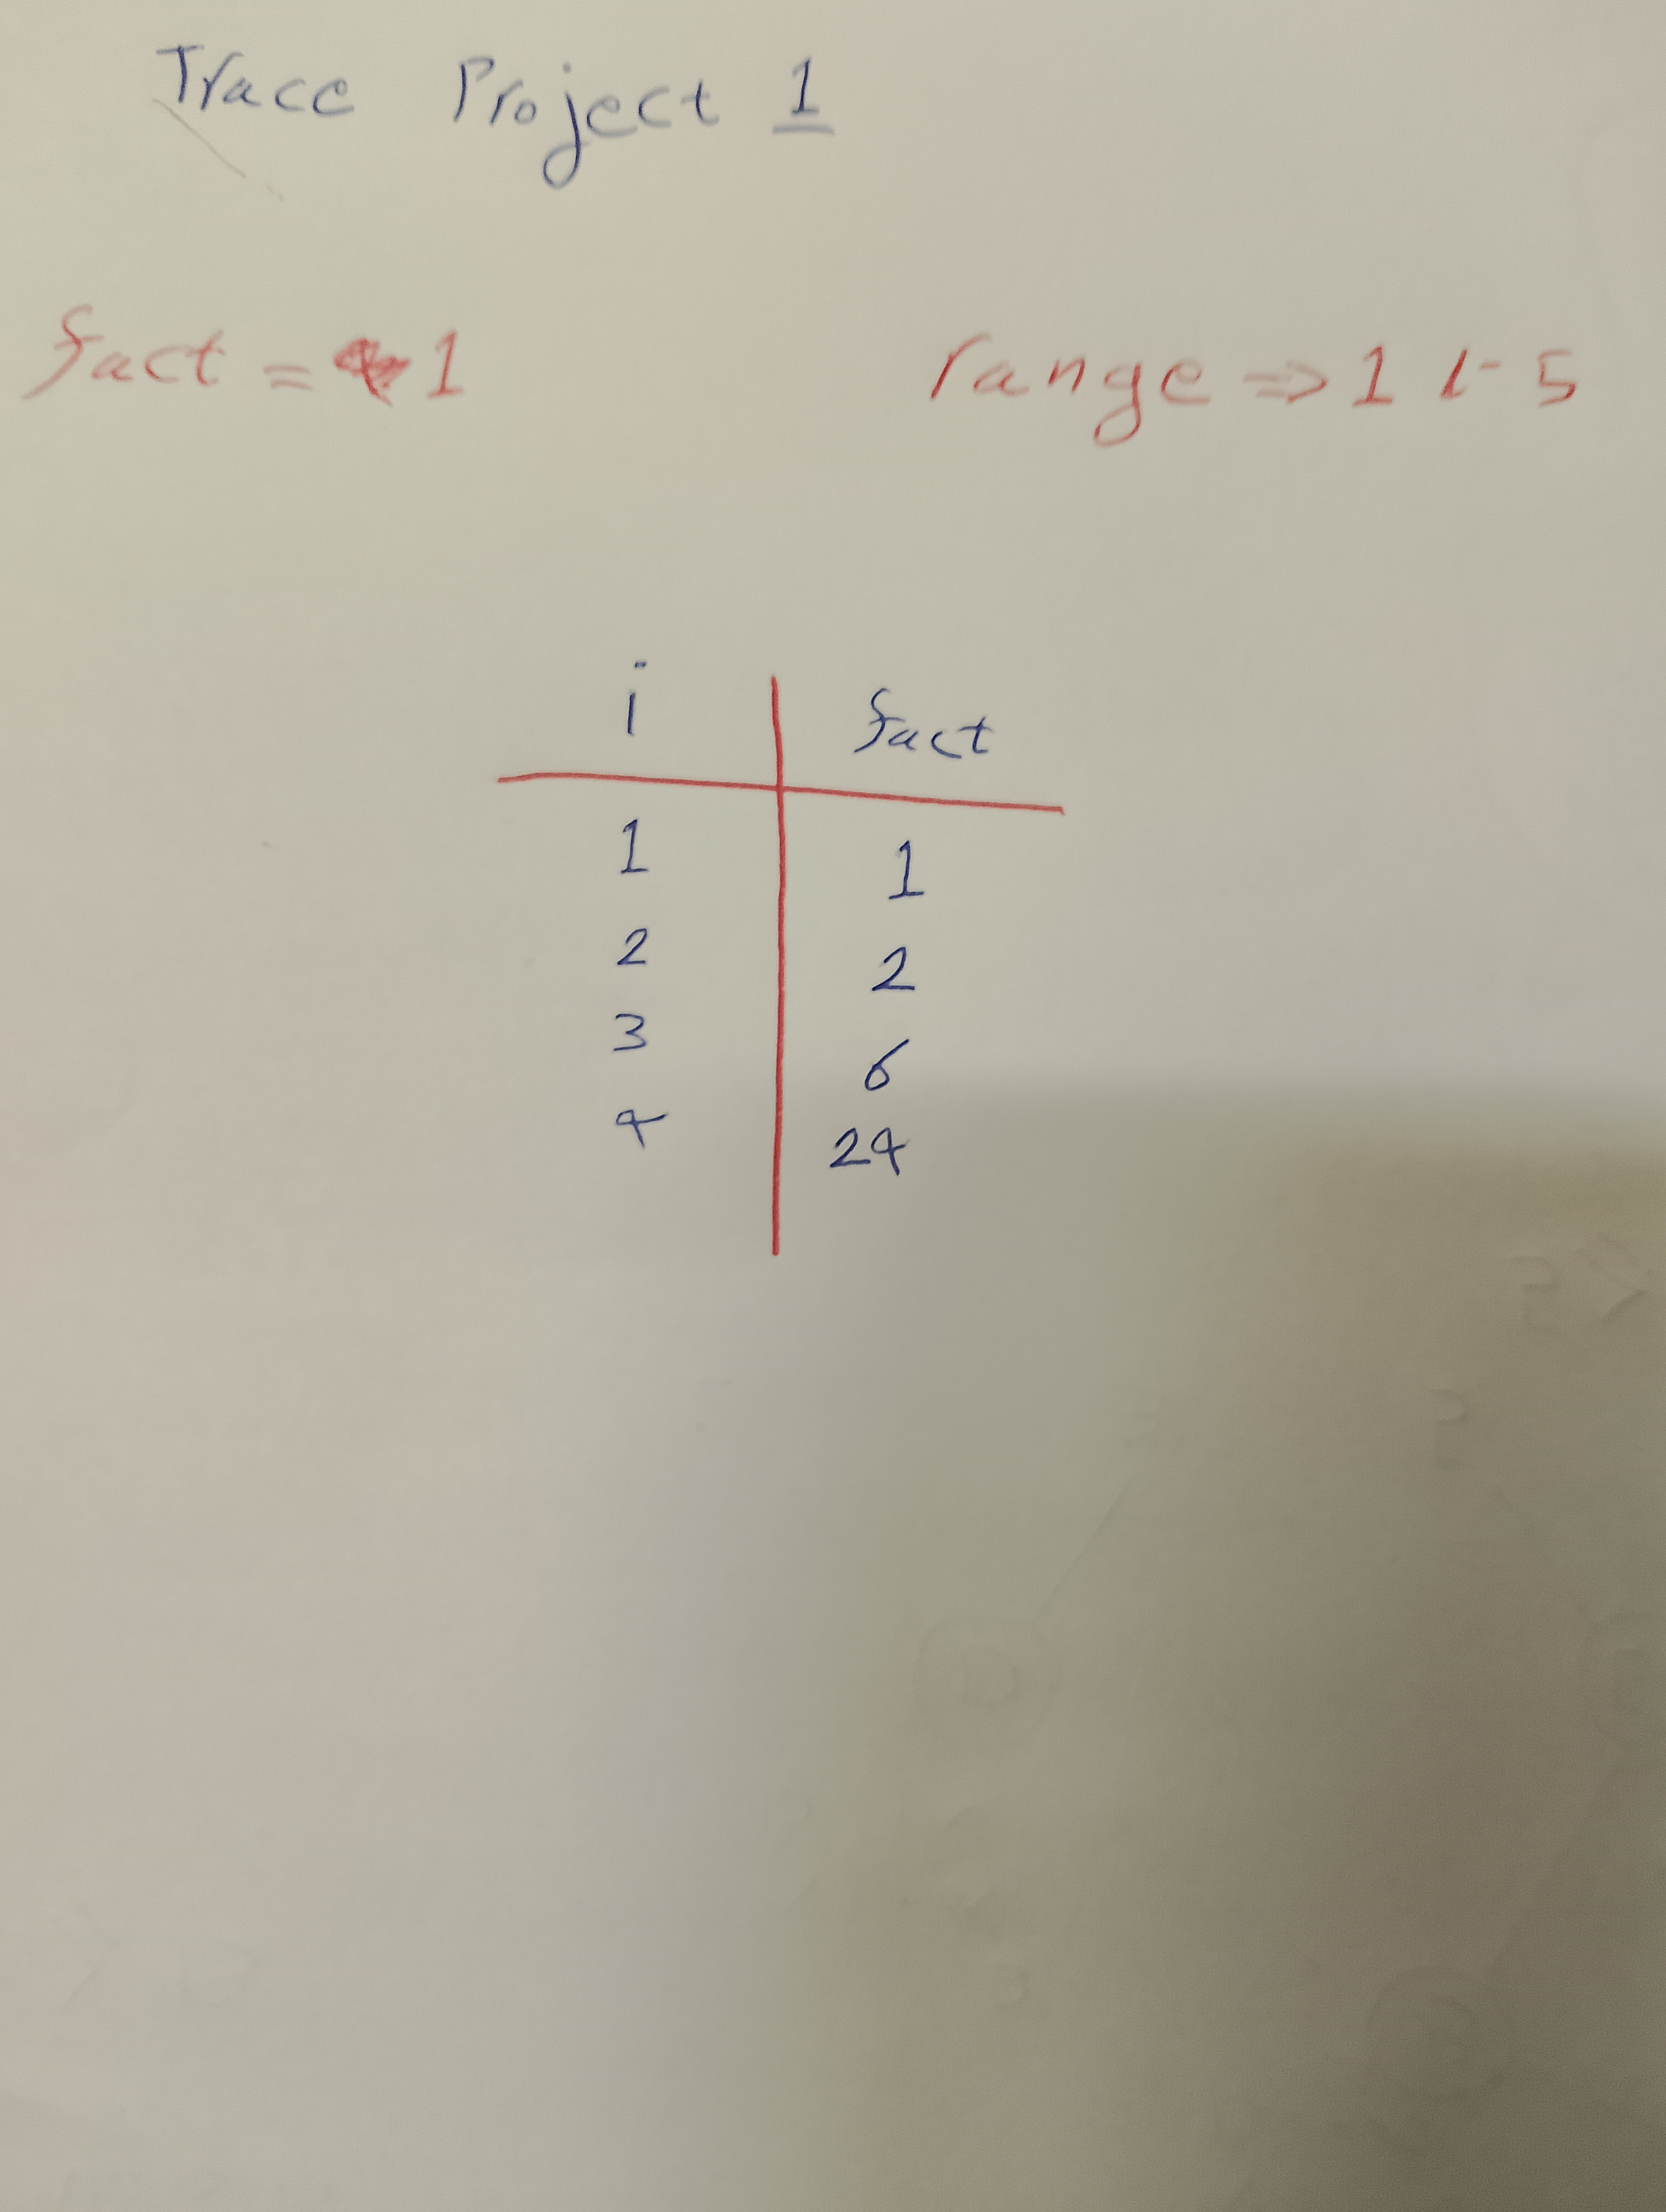 Trace Project 1
fact = 1 range => 1 5
i fact
1 1
2 2
3 6
4 24